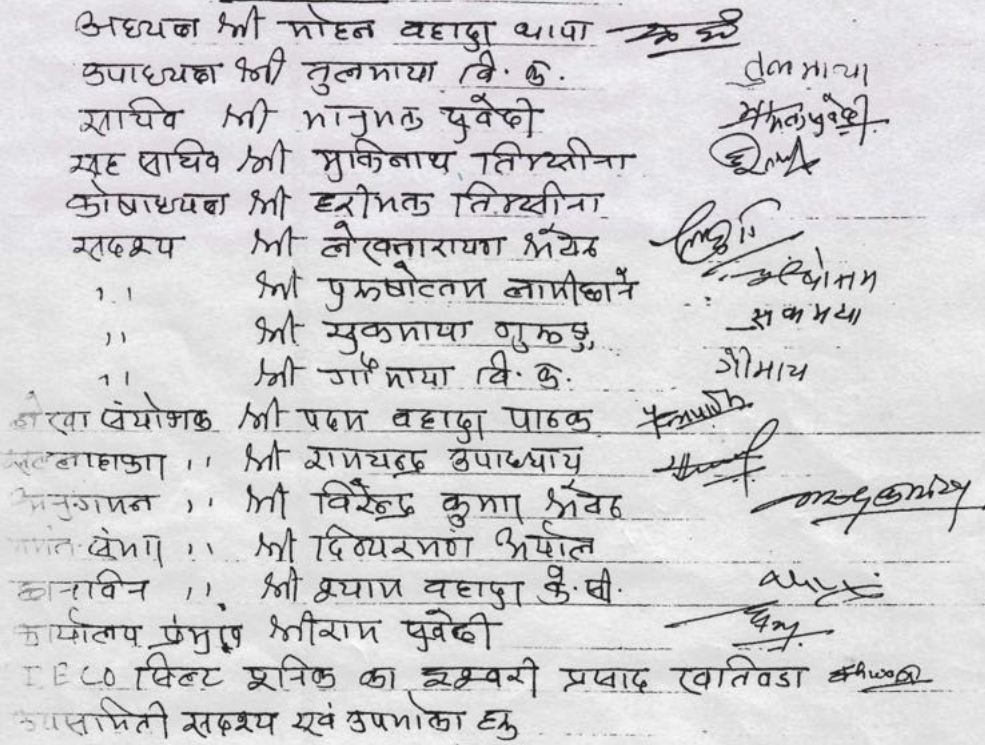 अध्यक्ष श्री मोहन वहादुर थापा
उपाध्यक्ष श्री तुलमाया वि. क. तुलमाया
साचिव श्री भानुभक्त चुवेदी
सह साचिव श्री मुक्तिनाथ तिम्सीना
कोषाध्यक्ष श्री हरीभक्त तिम्सीना
सदश्य श्री लेखनारायण श्रेष्ठ
,, श्री पुरुषोत्तम लामीछाने
,, श्री सुकमाया गुरुङ्ग सुकमया
,, श्री गौमाया वि. क. गौमाय
लेखा संयोजक श्री पदम वहादुर पाठक
सल्लाहाकार ,, श्री रामचन्द्र उपाध्याय
अनुगमन ,, श्री विरेन्द्र कुमार श्रेष्ठ
,, श्री दिव्यरमण अर्याल
,, श्री श्याम वहादुर के.सी.
कार्यालय प्रमुख श्रीराम चुवेदी
का इश्वरी प्रसाद खतिवडा
उपसमिती सदश्य एवं उपभोक्ता हरु